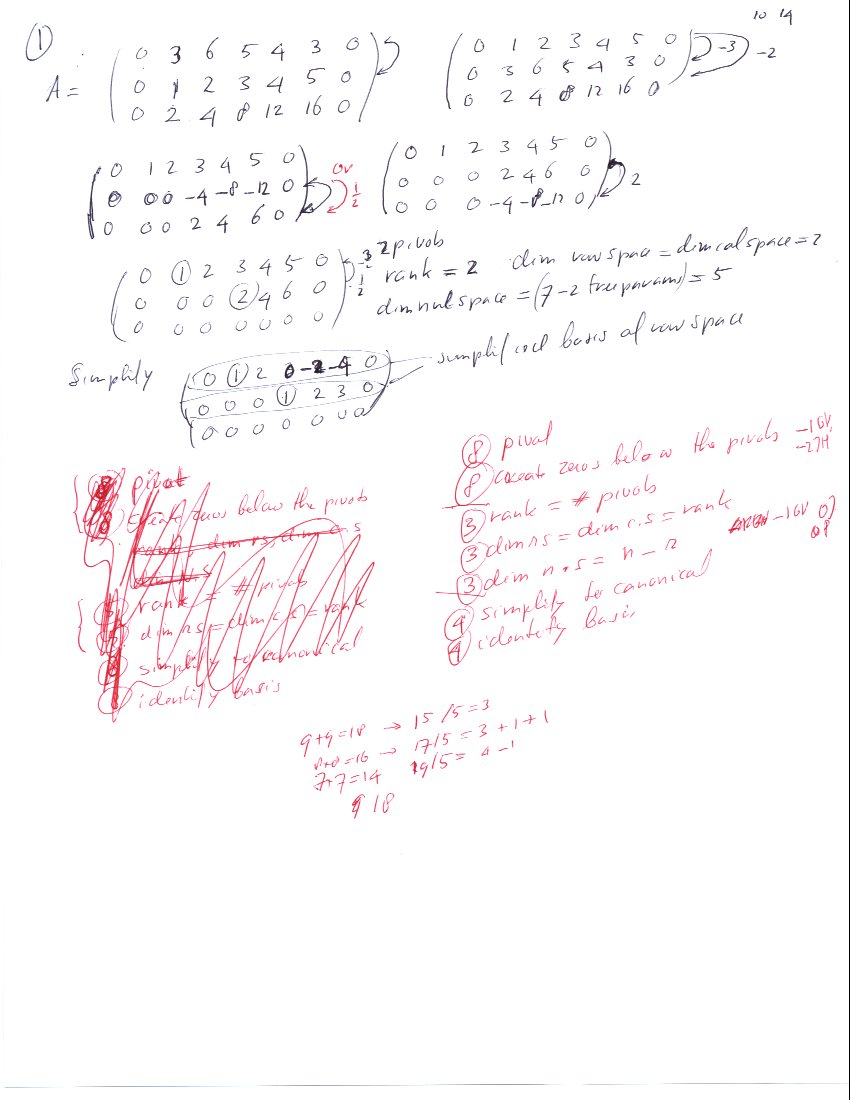 10 14
①
A =
0 3 6 5 4 3 0
0 1 2 3 4 5 0
0 2 4 8 12 16 0
0 1 2 3 4 5 0
0 3 6 5 4 3 0
0 2 4 8 12 16 0
-3 -2
0 1 2 3 4 5 0
0 0 0 -4 -8 -12 0
0 0 0 2 4 6 0
or 1/2
0 1 2 3 4 5 0
0 0 0 2 4 6 0
0 0 0 -4 -8 -12 0
2
0 ① 2 3 4 5 0
0 0 0 ② 4 6 0
0 0 0 0 0 0 0
2 pivots
rank = 2 dim row space = dim col space = 2
dim nul space = (7-2 free params) = 5
Simplify
0 ① 2 0 -2 -4 0
0 0 0 ① 2 3 0
0 0 0 0 0 0 0
simplified basis of row space
pivot
create zeros below the pivots
rank, dim rs, dim c.s
dim n.s
rank = # pivots
dim rs = dim c.s = rank
simplify to canonical
identify basis
⑧ pivot
⑧ create zeros below the pivots -1GV,
-2TH
③ rank = # pivots
③ dim r.s = dim c.s = rank
-1GV
③ dim n.s = n - r
④ simplify to canonical
④ identify basis
9+9=18 → 15/5=3
8+8=16 → 17/5=3+1+1
7+7=14 19/5= 4-1
9 18